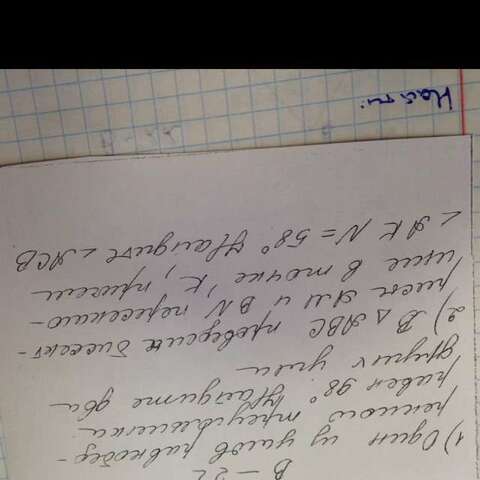 В – 22
1) Один из углов равнобед-
ренного треугольника
равен 98°. Найдите два
других угла
2) В △ ABC проведены биссект-
рисы AM и BN пересекаю-
щиеся в точке K, причем
∠ AKN = 58° Найдите ∠ ACB